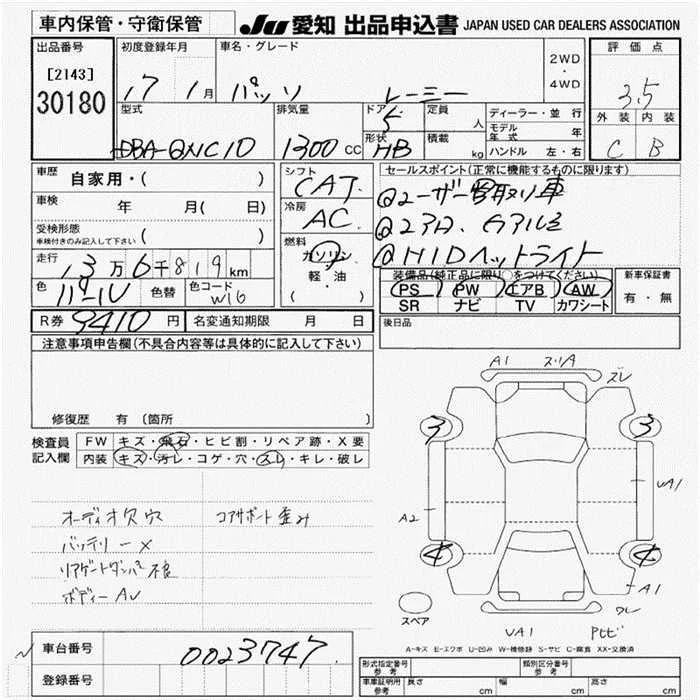 車内保管・守衛保管 JU 愛知 出品申込書 JAPAN USED CAR DEALERS ASSOCIATION
出品番号 初度登録年月 車名・グレード 2WD・4WD 評価点
[2143] 17 1月 パッソ レーシー 3.5
30180
型式 排気量 ドア 5 定員 人 ディーラー・並行 外装 内装
DBA-QNC10 1300 CC 形状 HB 積載 kg モデル年式 年 C B
ハンドル 左・右
車歴 自家用・( ) シフト CAT セールスポイント(正常に機能するものに限ります)
車検 年 月( 日) 冷房 AC @ユーザー買取り車
受検形態 車検付きのみ記入して下さい ( ) @エアロ、
走行 13万6千819km 燃料 ガソリン・軽・油 ( ) @HIDヘットライト
色 パール 色替 色コード W16 装備品(純正品に限り○をつけてください) 新車保証書
PS PW エアB AW 有・無
SR ナビ TV カワシート
R券 9410円 名変通知期限 月 日 後日品
注意事項申告欄(不具合内容等は具体的に記入して下さい)
修復歴 有 (箇所 )
検査員記入欄 FW キズ・飛石・ヒビ割・リペア跡・X要
内装 キズ・汚レ・コゲ・穴・スレ・キレ・破レ
オーディオ欠穴 コアサポート歪み
バッテリー×
リアゲートダンパー不良
ボディーAU
A1 スリA
ズレ
3 3
UA1
A2
4 4
A1
スペア ワレ
UA1
A-キズ E-エクボ U-凹み W-補修跡 S-サビ C-腐食 XX-交換済
車台番号 0023747
登録番号
形式指定番号 参考 類別区分番号 参考
車庫証明用 参考 長さ cm 幅 cm 高さ cm